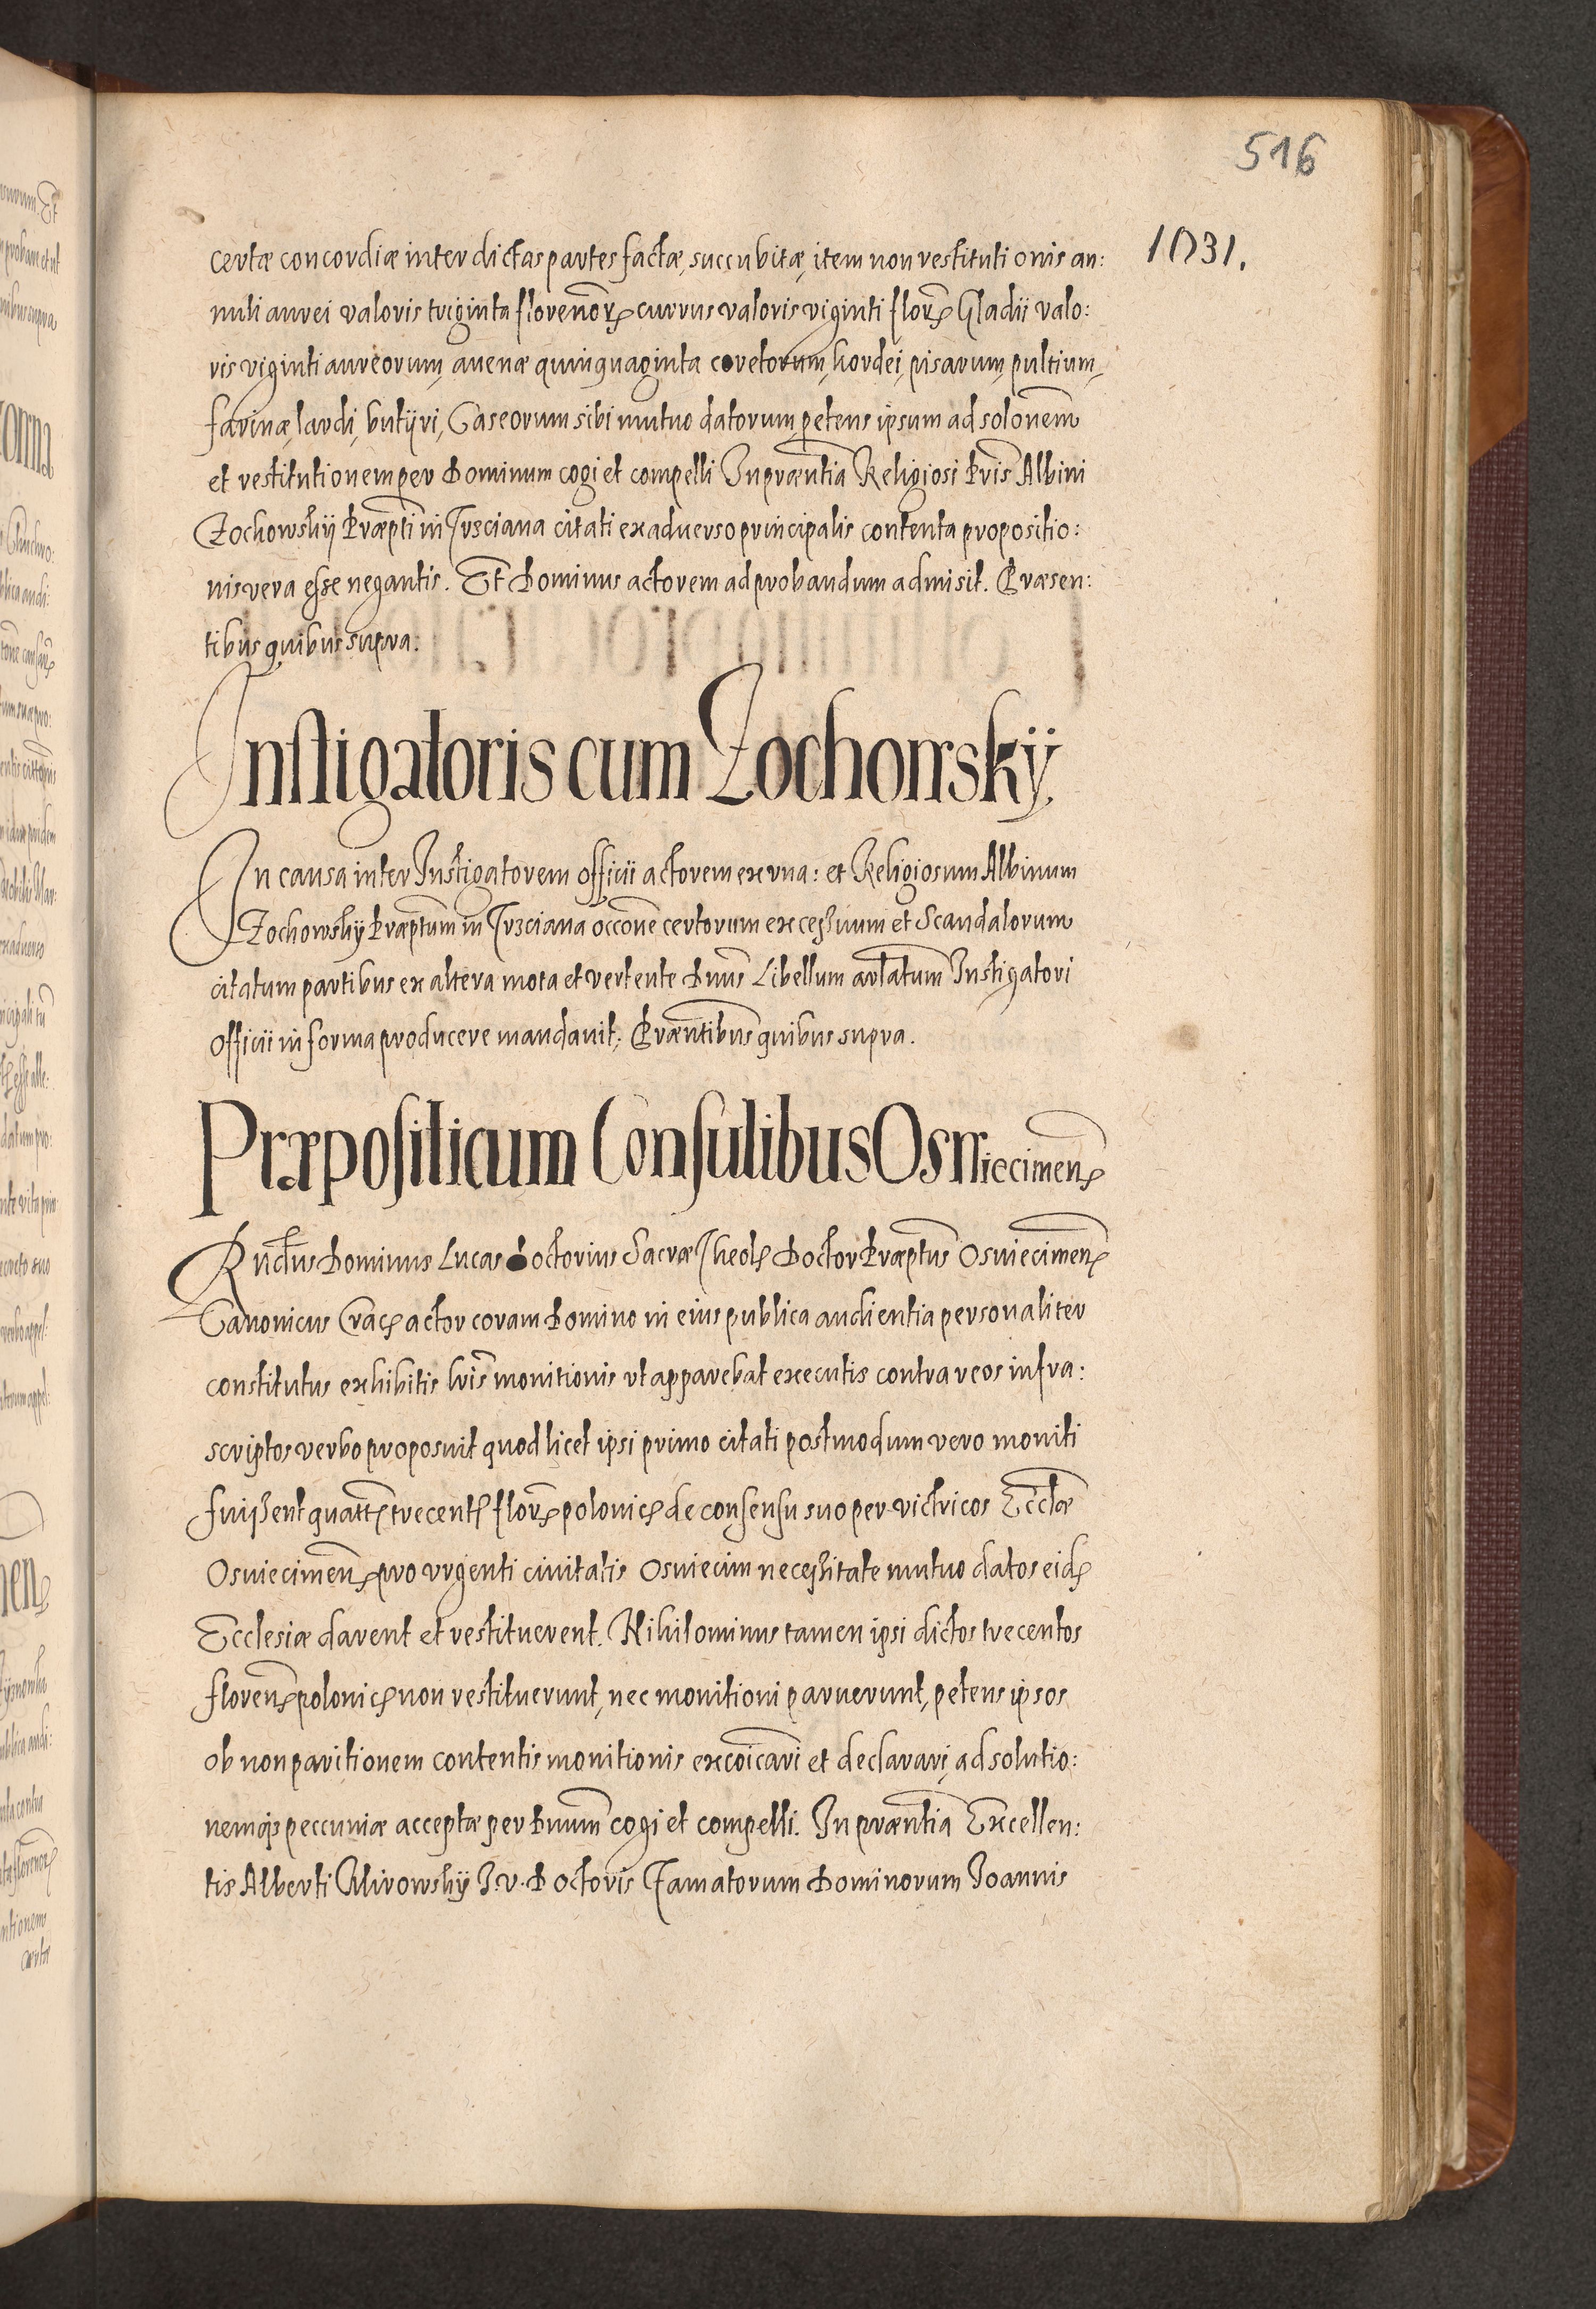 516
1031.
certæ concordiæ inter dictas partes factæ, succubitæ, item non restitutionis an:
nuli aurei valoris triginta florenor̃ currus valoris viginti flor̃ Gladii valo:
ris viginti aureorum, auenæ quinquaginta coretorum, hordei, pisarum, pultium,
farinæ, lardi, butÿri, Caseorum sibi mutuo datorum, petens ipsum ad solonem̃
et restitutionem per Dominum cogi et compelli In præntia Religiosi Pris Albini
Zochowskÿ Præpti in Trzciana citati ex aduerso principalis contenta propositio:
nis vera esse negantis. Et Dominus actorem ad probandum admisit. Præsen:
tibus quibus supra.
Instigatoris cum Zochowskÿ.
In causa inter Instigatorem officii actorem ex vna: et Religiosum Albinum
Zochowskÿ Præptum in Trzciana occone certorum excessuum et Scandalorum
citatum partibus ex altera mota et vertente Dnus Libellum artlatum Instigatori
officii in forma producere mandauit; Præntibus quibus supra.
Præpositi cum Consulibus Oswiecimen̄
Rndus Dominus Lucas Doctorius Sacræ Theol̃ Doctor Præptus Osuiecimen̄
Canonicus Crac̃ actor coram Domino in eius publica audientia personaliter
constitutus exhibitis lris monitionis vt apparebat executis contra reos infra:
scriptos verbo proposuit quod licet ipsi primo citati postmodum vero moniti
fuissent quatt̃ trecent̃ flor̃ polonic̃ de consensu suo per victricos Eccłæ
Osuiecimen̄ pro vrgenti ciuitatis Osuiecim necessitate mutuo datos eid̃
Ecclesiæ darent et restituerent. Nihilominus tamen ipsi dictos trecentos
floren̄ polonic̃ non restituerunt, nec monitioni paruerunt, petens ipsos
ob non paritionem contentis monitionis excoicari et declarari, ad solutio:
nemqs peccuniæ acceptæ per Dnum cogi et compelli. In præntia Excellen:
tis Alberti Mirowskÿ I. V. Doctoris Famatorum Dominorum Joannis